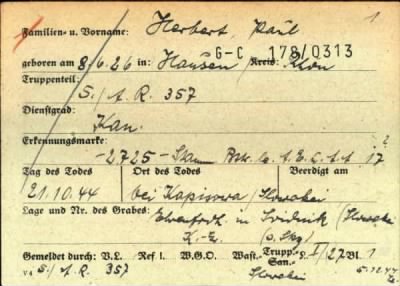 1
Familien- u. Vorname: Herbert, Paul
G-C 178/0313
geboren am 8.6.26 in: Hausen / Kreis:
Truppenteil:
5./A.R. 357
Dienstgrad:
Kan.
Erkennungsmarke: ?
-2725- Stam. Bttr. A.E. 17
Tag des Todes Ort des Todes Beerdigt am
21.10.44 bei Kapisova / Slowakei
Lage und Nr. des Grabes: in Svidnik (Slowakei
K.-E.
Gemeldet durch: V.L. Ref I. W.G.O. Wast.- Trupp.- San.- L. I/27 Bl. 1
va 5./A.R. 357 Slowakei 5.12.44